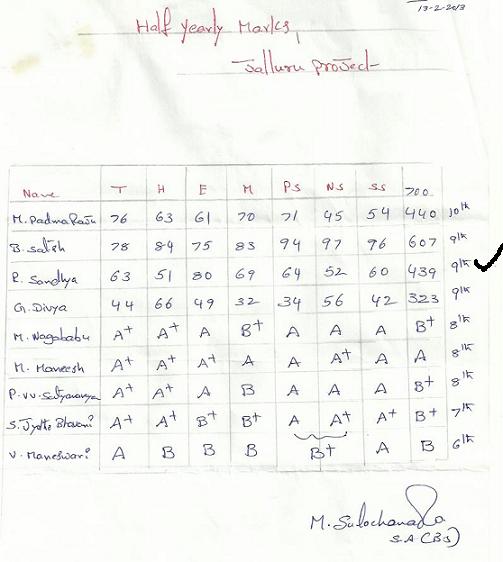 13-2-2013
Half yearly Marks,
Jalluru project
Name T H E M PS NS SS 700
M. PadmaRaju 76 63 61 70 71 45 54 440 10th
B. Satish 78 84 75 83 94 97 96 607 9th
R. Sandhya 63 51 80 69 64 52 60 439 9th
G. Divya 44 66 49 32 34 56 42 323 9th
M. Nagababu A+ A+ A B+ A A A B+ 8th
M. Maneesh A+ A+ A A A A+ A A 8th
P. VV. A+ A+ A B A A A B+ 8th
S. Jyothi Bhavani A+ A+ B+ B+ A A+ A+ B+ 7th
V. Maneswari A B B B B+ A B 6th
M. Sulochana
S.A (BS)